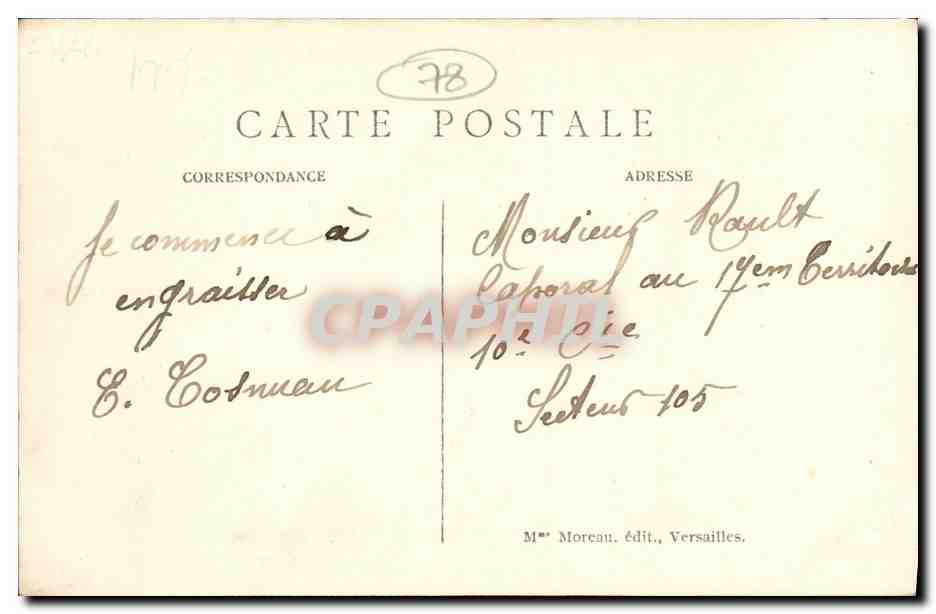 78
CARTE POSTALE
CORRESPONDANCE
Je commence à
engraisser
E. Cosnuau
ADRESSE
Monsieur Rault
Caporal au 17em Territorial
10e Cie
Secteur 105
CPAPHIL
Mme Moreau. édit., Versailles.